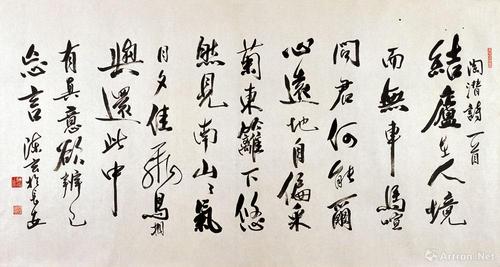 陶潛詩一首
結廬在人境
而無車馬喧
問君何能爾
心遠地自偏采
菊東籬下悠
然見南山〻氣
日夕佳飛鳥相
與還此中
有真意欲辨已
忘言
於長安
Artron.Net